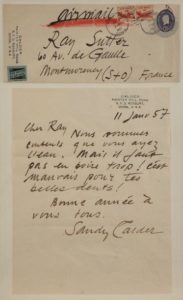 airmail
CALDER
PAINTER HILL ROAD
Ray Sutter
60 Av. de Gaulle
Montmorency
(S+O) France
CALDER
PAINTER HILL ROAD
11 Janv 57
Cher Ray Nous sommes
contents que vous ayez
l'eau. Mais il faut
pas en boire trop! C'est
mauvais pour les
belles dents!
Bonne année à
vous tous.
Sandy Calder